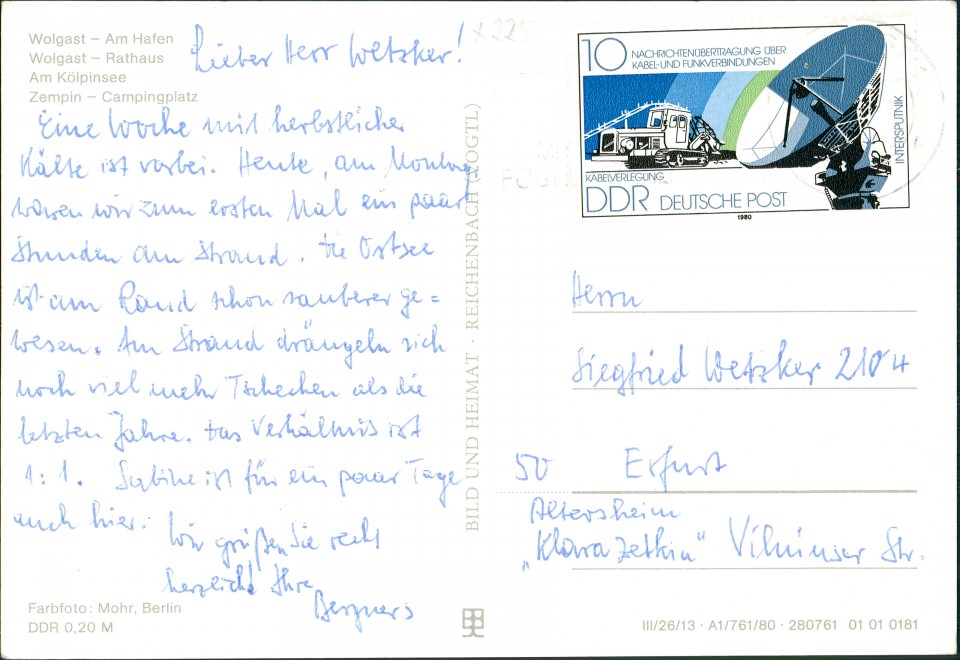 Wolgast – Am Hafen
Wolgast – Rathaus
Am Kölpinsee
Zempin – Campingplatz
Lieber Herr Wetzker!
Eine Woche mit herbstlicher
Kälte ist vorbei. Heute, am Montag
waren wir zum ersten Mal ein paar
Stunden am Strand. Die Ostsee
ist am Rand schon sauberer ge=
wesen. Am Strand drängeln sich
noch viel mehr Tschechen als die
letzten Jahre. Das Verhältnis ist
1:1. Sabine ist für ein paar Tage
auch hier. Wir grüßen Sie recht
herzlich Ihre
Bergners
Farbfoto: Mohr, Berlin
DDR 0,20 M
BILD UND HEIMAT · REICHENBACH (VOGTL)
10 NACHRICHTENÜBERTRAGUNG ÜBER
KABEL-UND FUNKVERBINDUNGEN
INTERSPUTNIK
KABELVERLEGUNG
DDR DEUTSCHE POST
1980
Herrn
Siegfried Wetzker 2104
50 Erfurt
Altersheim
„Klara Zetkin" Vilniuser Str.
III/26/13 · A1/761/80 · 280761 01 01 0181